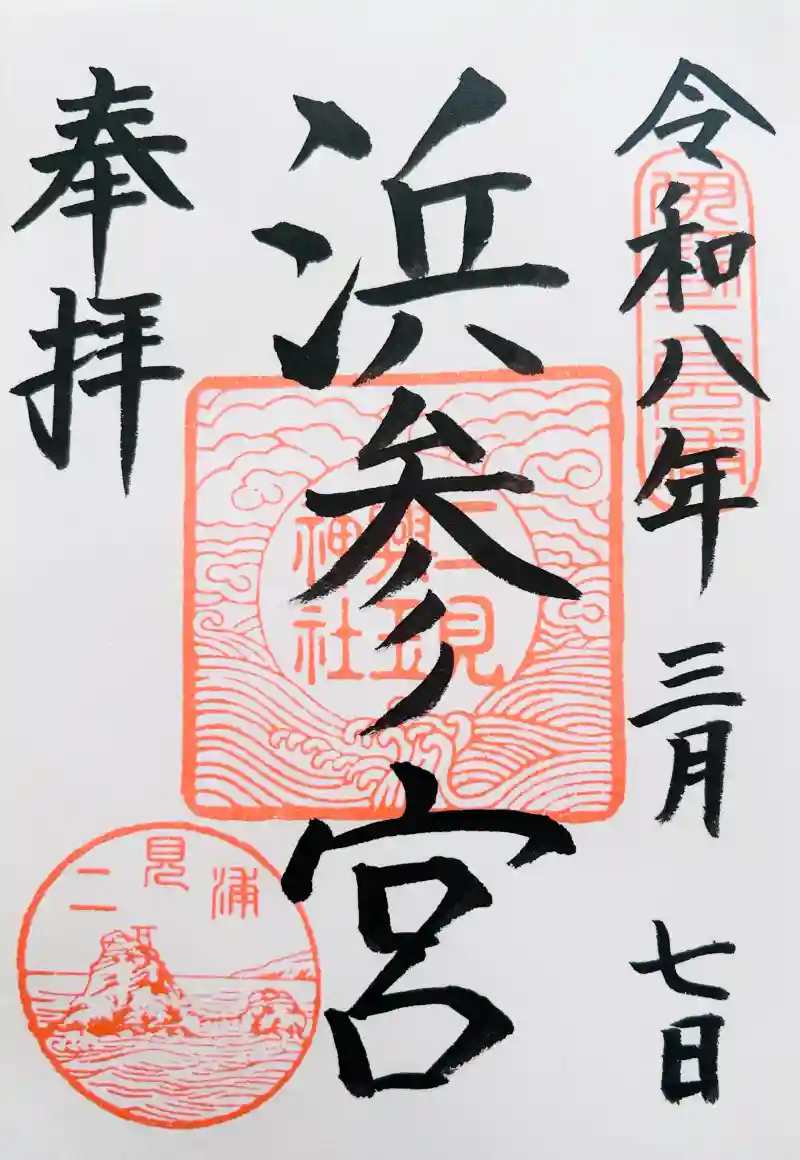 令和八年 三月 七日
伊勢二見浦
浜参宮
二見
興玉
神社
奉拝
二見浦